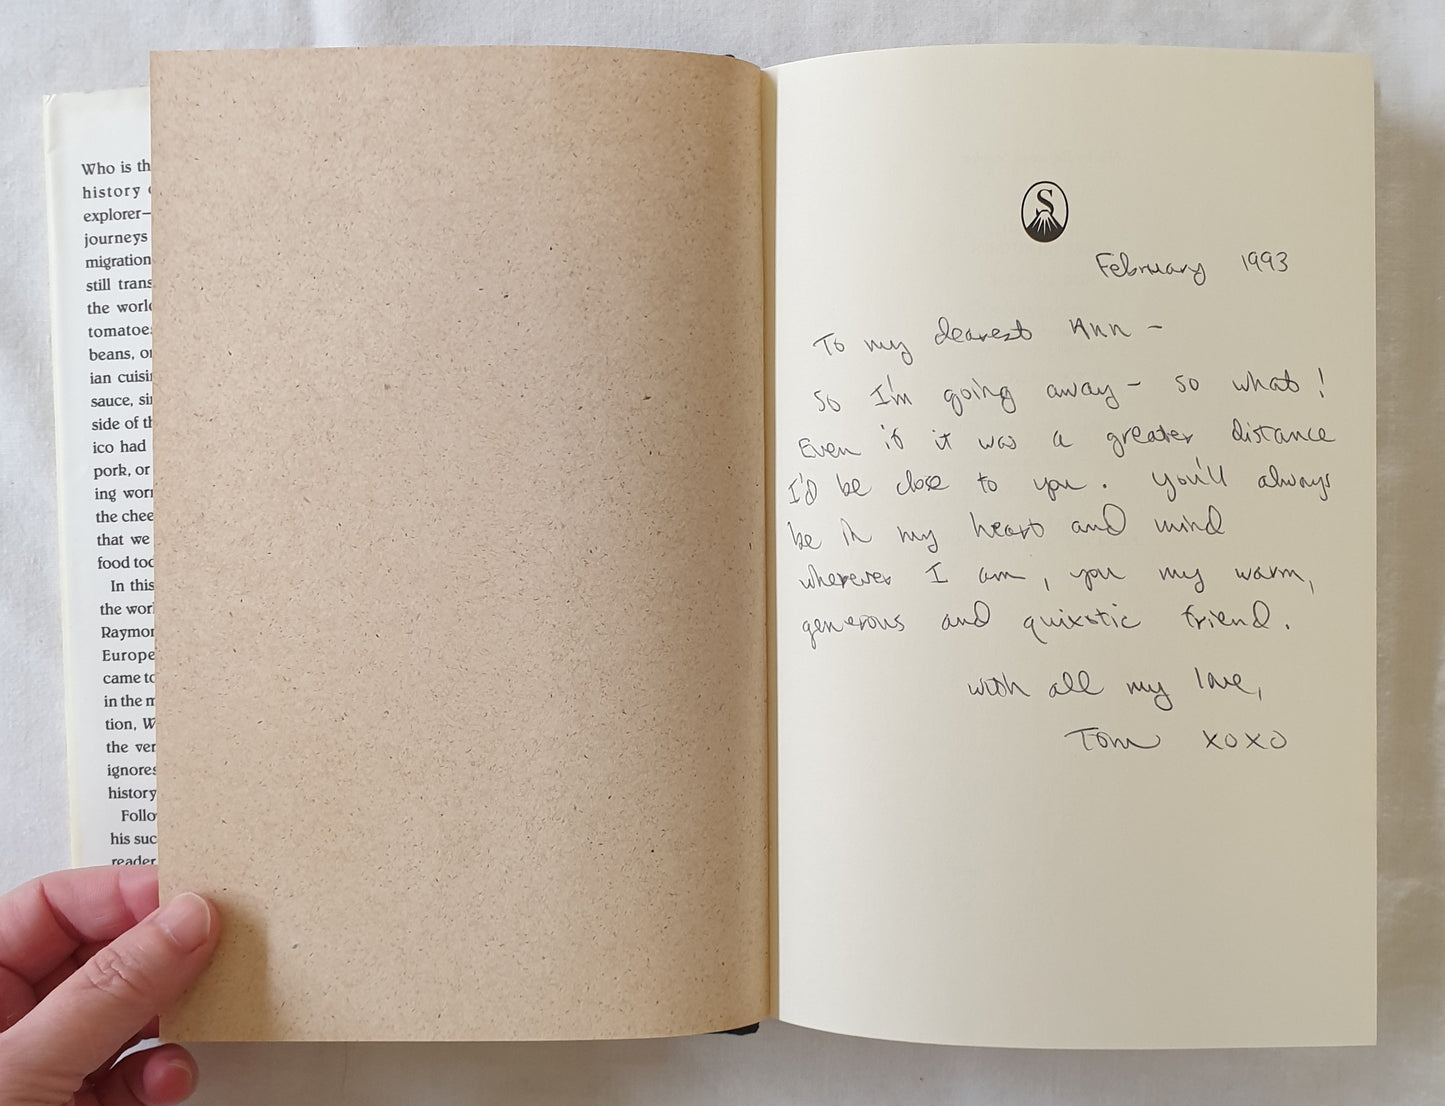 Who is th
history
explorer—
journeys
migration
still trans
the world
tomatoe
beans, or
ian cuisi
sauce, si
side of th
ico had
pork, or
ing wor
the chee
that we
food too
In this
the wor
Raymon
Europe
came to
in the m
tion, W
the ver
ignores
history
Follo
his suc
reader
S
February 1993
To my dearest Ann –
So I'm going away – so what!
Even if it was a greater distance
I'd be close to you. You'll always
be in my heart and mind
wherever I am, you my warm,
generous and quixotic friend.
with all my love,
Tom xoxo